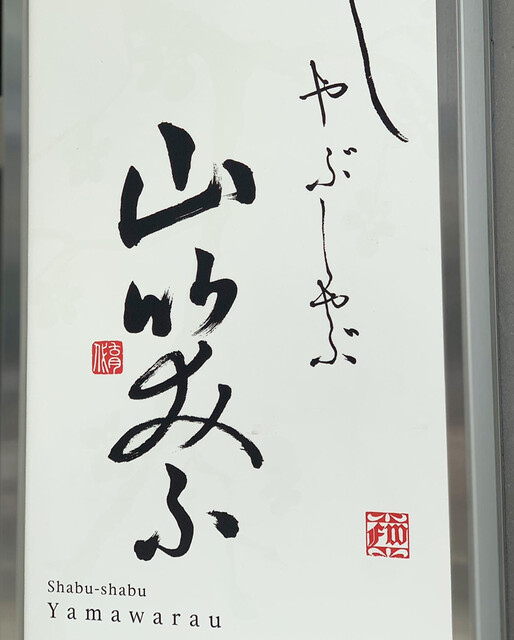 しゃぶしゃぶ
山笑ふ
Shabu-shabu
Yamawarau
FW